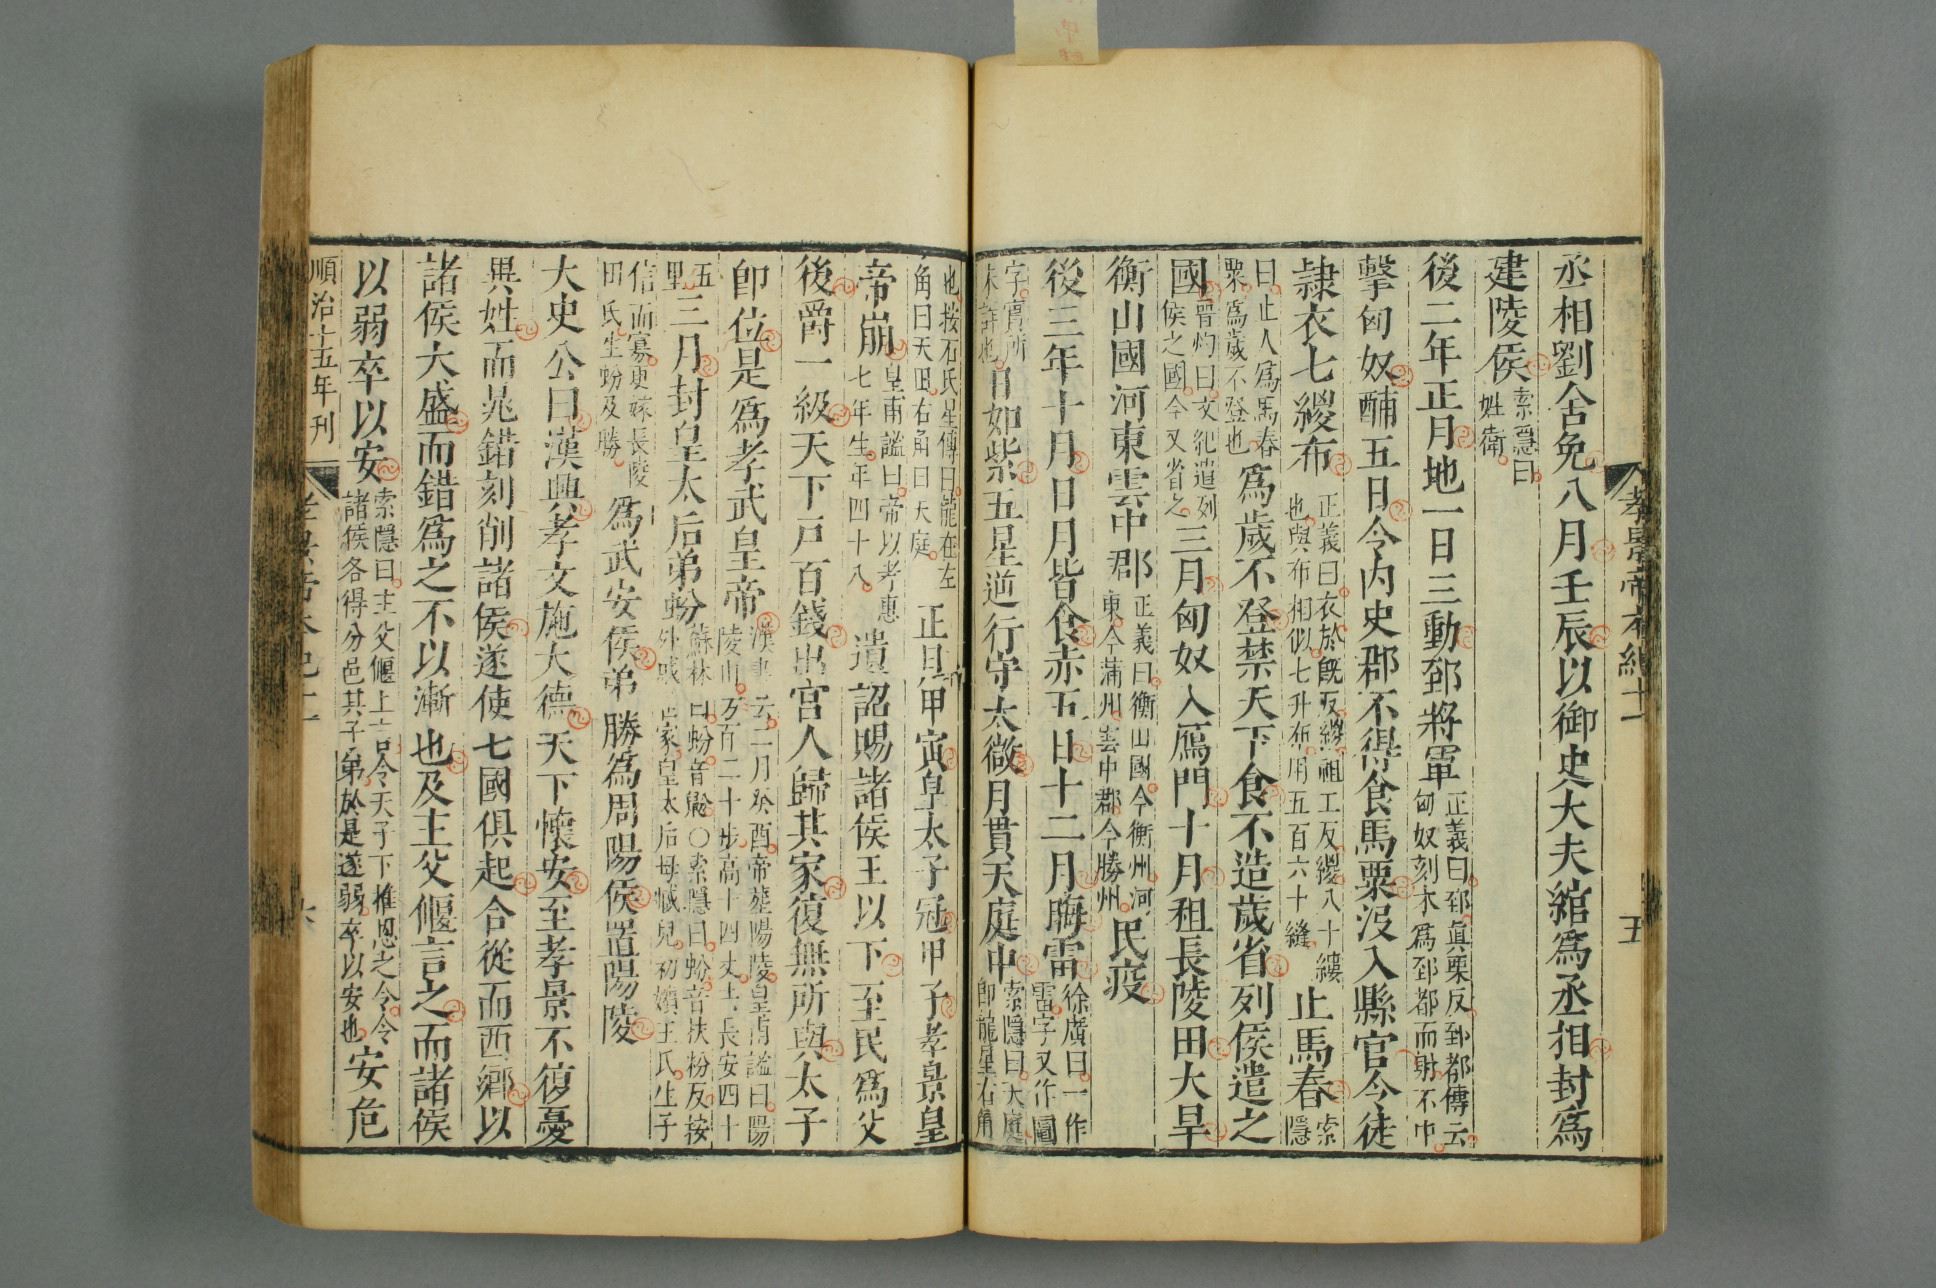 孝景帝本紀十一 五
丞相劉舍免八月壬辰以御史大夫綰爲丞相封爲
建陵侯索隱曰姓衛
後二年正月地一日三動郅將軍正義曰郅眞栗反郅都傳云匈奴刻木爲郅都而射不中
擊匈奴酺五日令內史郡不得食馬粟沒入縣官令徒
隷衣七緵布正義曰衣於旣反緵祖工反緵八十縷也與布相似七升布用五百六十縫止馬舂索隱
曰止人爲馬舂粟爲歲不登也爲歲不登禁天下食不造歲省列侯遣之
國晉灼曰文紀遣列侯之國今又省之三月匈奴入鴈門十月租長陵田大旱
衡山國河東雲中郡正義曰衡山國今衡州河東今蒲州雲中郡今勝州民疫
後三年十月日月皆食赤五日十二月晦雷徐廣曰一作雷字又作圖
字實所未詳也日如紫五星逆行守太微月貫天庭中索隱曰天庭卽龍星右角
也按石氏星傳曰龍在左角曰天田右角曰天庭正月甲寅皇太子冠甲子孝景皇
帝崩皇甫謐曰帝以孝惠七年生年四十八遺詔賜諸侯王以下至民爲父
後爵一級天下戶百錢出宮人歸其家復無所與太子
卽位是爲孝武皇帝漢書云二月癸酉帝葬陽陵皇甫謐曰陽陵山方百二十步高十四丈去長安四十
五里三月封皇太后弟蚡蘇林曰蚡音鼢〇索隱曰蚡音扶粉反按外戚世家皇太后母臧兒初嬪王氏生子
信而寡更嫁長陵田氏生蚡及勝爲武安侯弟勝爲周陽侯置陽陵
大史公曰漢興孝文施大德天下懷安至孝景不復憂
異姓而鼂錯刻削諸侯遂使七國俱起合從而西鄉以
諸侯大盛而錯爲之不以漸也及主父偃言之而諸侯
以弱卒以安索隱曰主父偃上言令天子下推恩之令令諸侯各得分邑其子弟於是遂弱卒以安也安危
順治十五年刊 孝景帝本紀十一 六